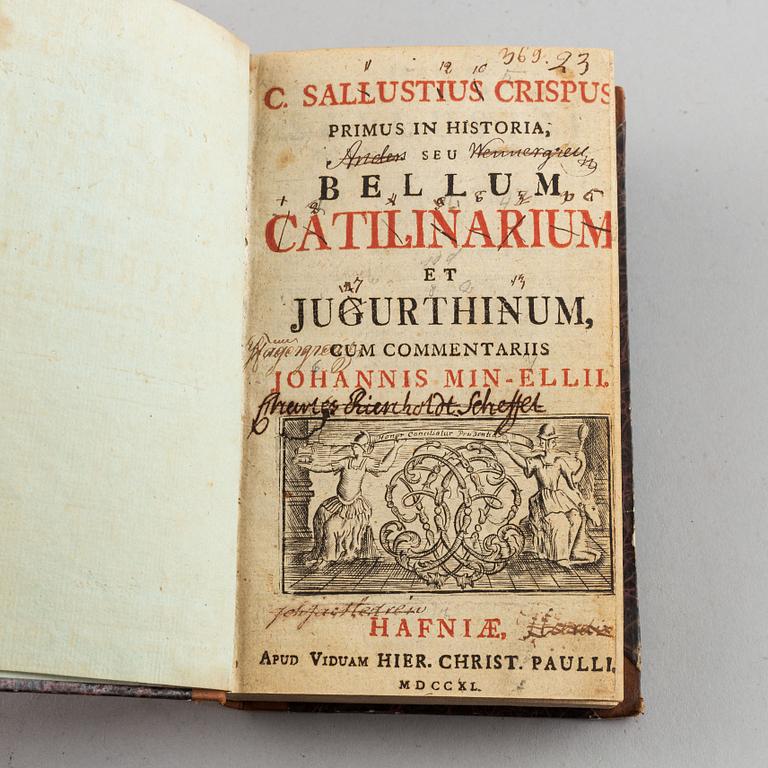 369. 23
C. SALLUSTIUS CRISPUS
PRIMUS IN HISTORIA,
Anders SEU Wennergren
BELLUM
CATILINARIUM
ET
JUGURTHINUM,
CUM COMMENTARIIS
JOHANNIS MIN-ELLII.
Scheffel
Honor Conciliatur Prudentia
HAFNIÆ,
APUD VIDUAM HIER. CHRIST. PAULLI.
MDCCXL.